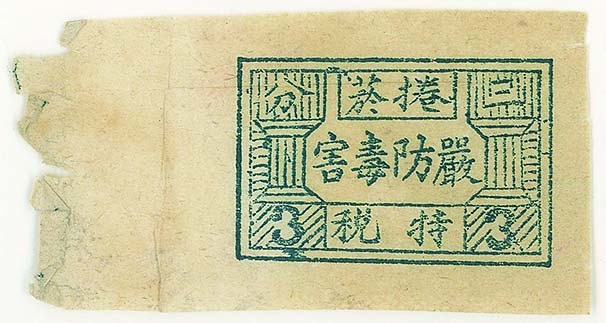 三 捲菸 分
嚴防毒害
3 特税 3